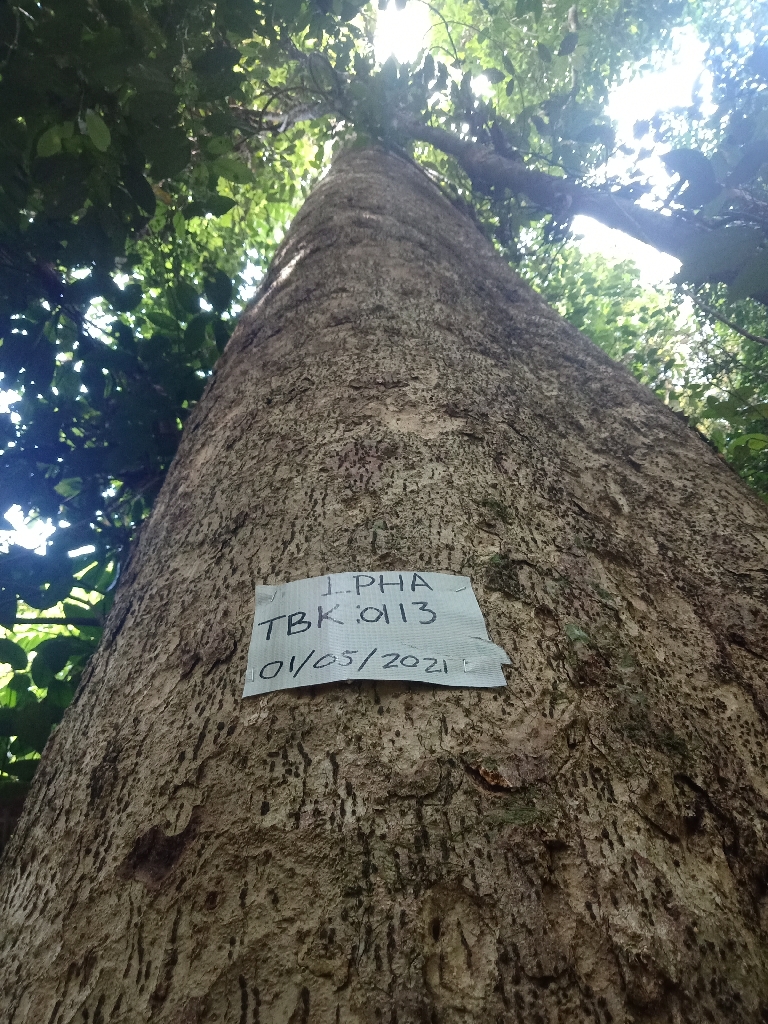 1_PHA
TBK:0113
01/05/2021